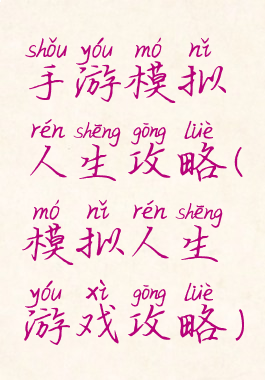 shǒu yóu mó nǐ
手游模拟
rén shēng gōng lüè
人生攻略(
mó nǐ rén shēng
模拟人生
yóu xì gōng lüè
游戏攻略)